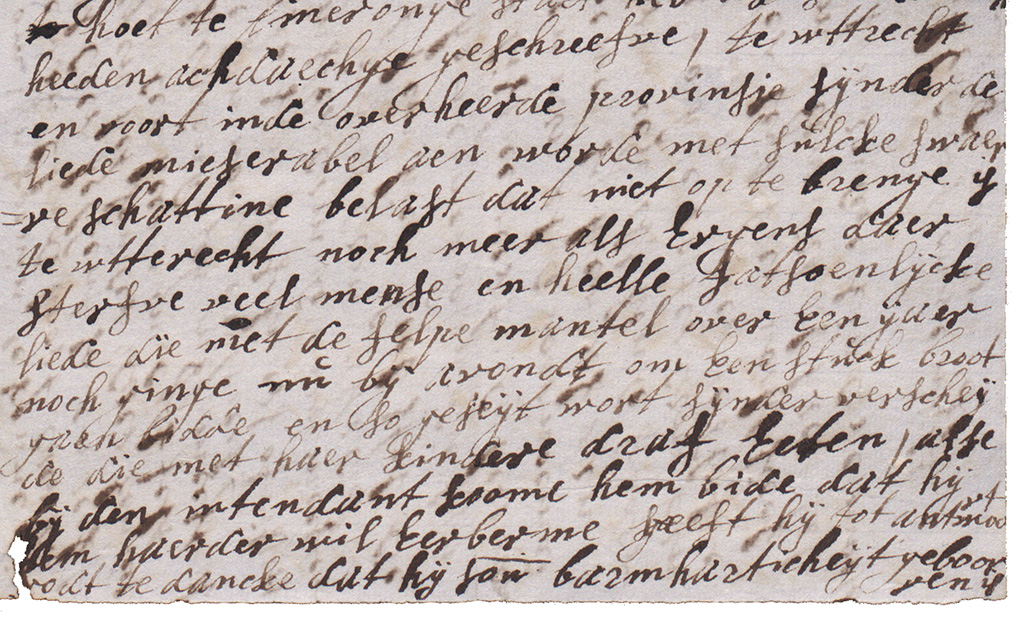 hoet te simeronge
heeden achdaechge geschreefve, te wttrecht
en voort inde overheerde provinsie sÿnder de
liede mieserabel aen worde met sulcke swaer
=re schattine belast dat niet op te brenge is
te wtterecht noch meer als ergens daer
sterfve veel mense en heelle fatsoenlÿcke
liede die met de felpe mantel over een ÿaer
noch ginge nu bÿ avondt om een stuck broot
gaen bidde en so geseÿt wort sÿnder verscheÿ
de die met haer kindere draf eeten, alse
bÿ den intendant koome hem bide dat hÿ
hem haerder wil eerberme geeft hÿ tot antwoort
godt te dancke dat hÿ son barmharticheÿt geboor
ven is